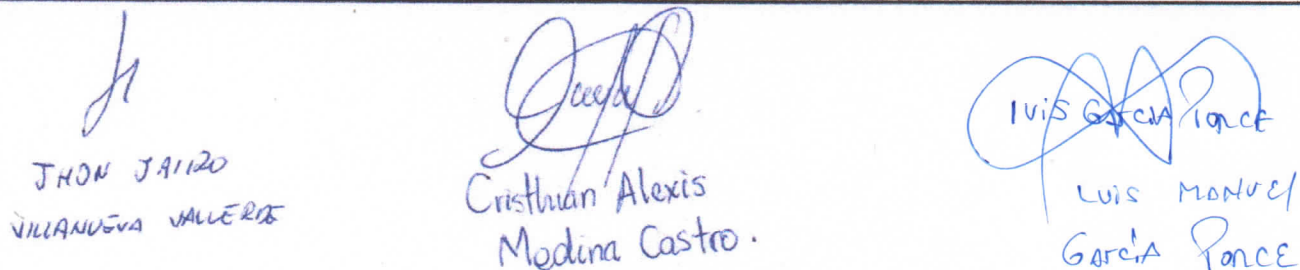 JHON JAIRO
VILLANUEVA VALLERDE
Cristhian Alexis
Medina Castro.
LUIS GARCIA PONCE
LUIS MANUEl
GARCÍA PONCE